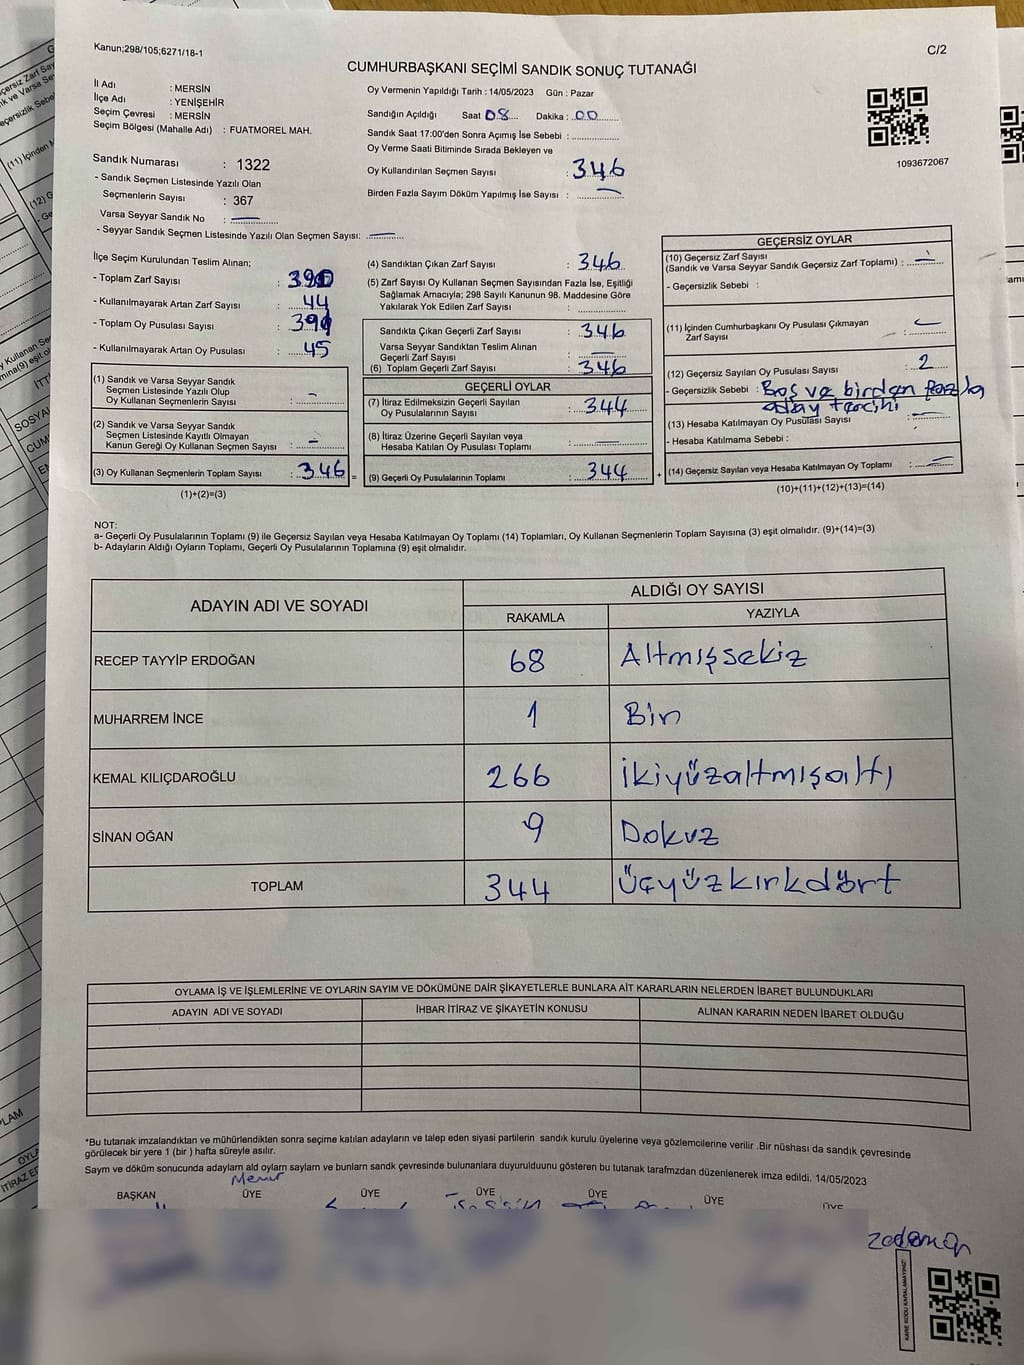 Kanun;298/105;6271/18-1
C/2
CUMHURBAŞKANI SEÇİMİ SANDIK SONUÇ TUTANAĞI
İl Adı : MERSİN
İlçe Adı : YENİŞEHİR
Seçim Çevresi : MERSİN
Seçim Bölgesi (Mahalle Adı) : FUATMOREL MAH.
Sandık Numarası : 1322
- Sandık Seçmen Listesinde Yazılı Olan
Seçmenlerin Sayısı : 367
Varsa Seyyar Sandık No :
- Seyyar Sandık Seçmen Listesinde Yazılı Olan Seçmen Sayısı:
Oy Vermenin Yapıldığı Tarih : 14/05/2023 Gün : Pazar
Sandığın Açıldığı Saat 08 Dakika : 00
Sandık Saat 17:00'den Sonra Açımış İse Sebebi :
Oy Verme Saati Bitiminde Sırada Bekleyen ve
Oy Kullandırılan Seçmen Sayısı : 346
Birden Fazla Sayım Döküm Yapılmış İse Sayısı :
1093672067
İlçe Seçim Kurulundan Teslim Alınan;
- Toplam Zarf Sayısı : 390
- Kullanılmayarak Artan Zarf Sayısı : 44
- Toplam Oy Pusulası Sayısı : 391
- Kullanılmayarak Artan Oy Pusulası : 45
(1) Sandık ve Varsa Seyyar Sandık
Seçmen Listesinde Yazılı Olup
Oy Kullanan Seçmenlerin Sayısı : -
(2) Sandık ve Varsa Seyyar Sandık
Seçmen Listesinde Kayıtlı Olmayan
Kanun Gereği Oy Kullanan Seçmen Sayısı : -
(3) Oy Kullanan Seçmenlerin Toplam Sayısı : 346 =
(1)+(2)=(3)
(4) Sandıktan Çıkan Zarf Sayısı : 346
(5) Zarf Sayısı Oy Kullanan Seçmen Sayısından Fazla İse, Eşitliği
Sağlamak Amacıyla; 298 Sayılı Kanunun 98. Maddesine Göre
Yakılarak Yok Edilen Zarf Sayısı :
Sandıkta Çıkan Geçerli Zarf Sayısı : 346
Varsa Seyyar Sandıktan Teslim Alınan
Geçerli Zarf Sayısı :
(6) Toplam Geçerli Zarf Sayısı : 346
GEÇERLİ OYLAR
(7) İtiraz Edilmeksizin Geçerli Sayılan
Oy Pusulalarının Sayısı : 344
(8) İtiraz Üzerine Geçerli Sayılan veya
Hesaba Katılan Oy Pusulası Toplamı :
(9) Geçerli Oy Pusulalarının Toplamı : 344 +
GEÇERSİZ OYLAR
(10) Geçersiz Zarf Sayısı
(Sandık ve Varsa Seyyar Sandık Geçersiz Zarf Toplamı) :
- Geçersizlik Sebebi :
(11) İçinden Cumhurbaşkanı Oy Pusulası Çıkmayan
Zarf Sayısı :
(12) Geçersiz Sayılan Oy Pusulası Sayısı : 2
- Geçersizlik Sebebi : Boş ve birden fazla
aday tercihi
(13) Hesaba Katılmayan Oy Pusulası Sayısı :
- Hesaba Katılmama Sebebi :
(14) Geçersiz Sayılan veya Hesaba Katılmayan Oy Toplamı :
(10)+(11)+(12)+(13)=(14)
NOT:
a- Geçerli Oy Pusulalarının Toplamı (9) ile Geçersiz Sayılan veya Hesaba Katılmayan Oy Toplamı (14) Toplamları, Oy Kullanan Seçmenlerin Toplam Sayısına (3) eşit olmalıdır. (9)+(14)=(3)
b- Adayların Aldığı Oyların Toplamı, Geçerli Oy Pusulalarının Toplamına (9) eşit olmalıdır.
ADAYIN ADI VE SOYADI
ALDIĞI OY SAYISI
RAKAMLA YAZIYLA
RECEP TAYYİP ERDOĞAN 68 Altmışsekiz
MUHARREM İNCE 1 Bin
KEMAL KILIÇDAROĞLU 266 İkiyüzaltmışaltı
SİNAN OĞAN 9 Dokuz
TOPLAM 344 Üçyüzkırkdört
OYLAMA İŞ VE İŞLEMLERİNE VE OYLARIN SAYIM VE DÖKÜMÜNE DAİR ŞİKAYETLERLE BUNLARA AİT KARARLARIN NELERDEN İBARET BULUNDUKLARI
ADAYIN ADI VE SOYADI İHBAR İTİRAZ VE ŞİKAYETİN KONUSU ALINAN KARARIN NEDEN İBARET OLDUĞU
*Bu tutanak imzalandıktan ve mühürlendikten sonra seçime katılan adayların ve talep eden siyasi partilerin sandık kurulu üyelerine veya gözlemcilerine verilir .Bir nüshası da sandık çevresinde
görülecek bir yere 1 (bir ) hafta süreyle asılır.
Sayım ve döküm sonucunda adaylarn ald oylarn saylarn ve bunlarn sandk çevresinde bulunanlara duyurulduunu gösteren bu tutanak tarafmzdan düzenlenerek imza edildi. 14/05/2023
BAŞKAN ÜYE ÜYE ÜYE ÜYE ÜYE ÜYE
KARE KODU KARALAMAYINIZ!